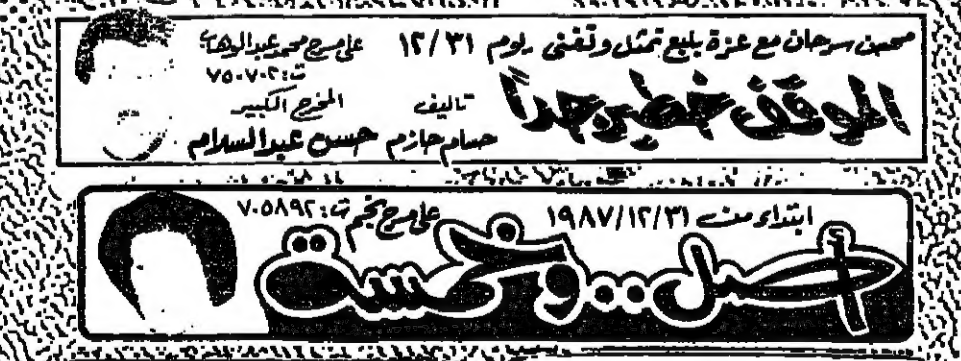 محسن سرحان مع عزة بلبع تمثل وتغنى يوم ١٢/٣١
على مسرح محمد عبدالوهاب
ت: ٧٥٠٧٠٢
الموقف خطير جداً
تاليف
حسام حازم
المخرج الكبير
حسن عبدالسلام
ابتداء من ١٩٨٧/١٢/٣١
على مسرح نجم ت: ٧٠٥٨٩٢
أصل.. وخمسة